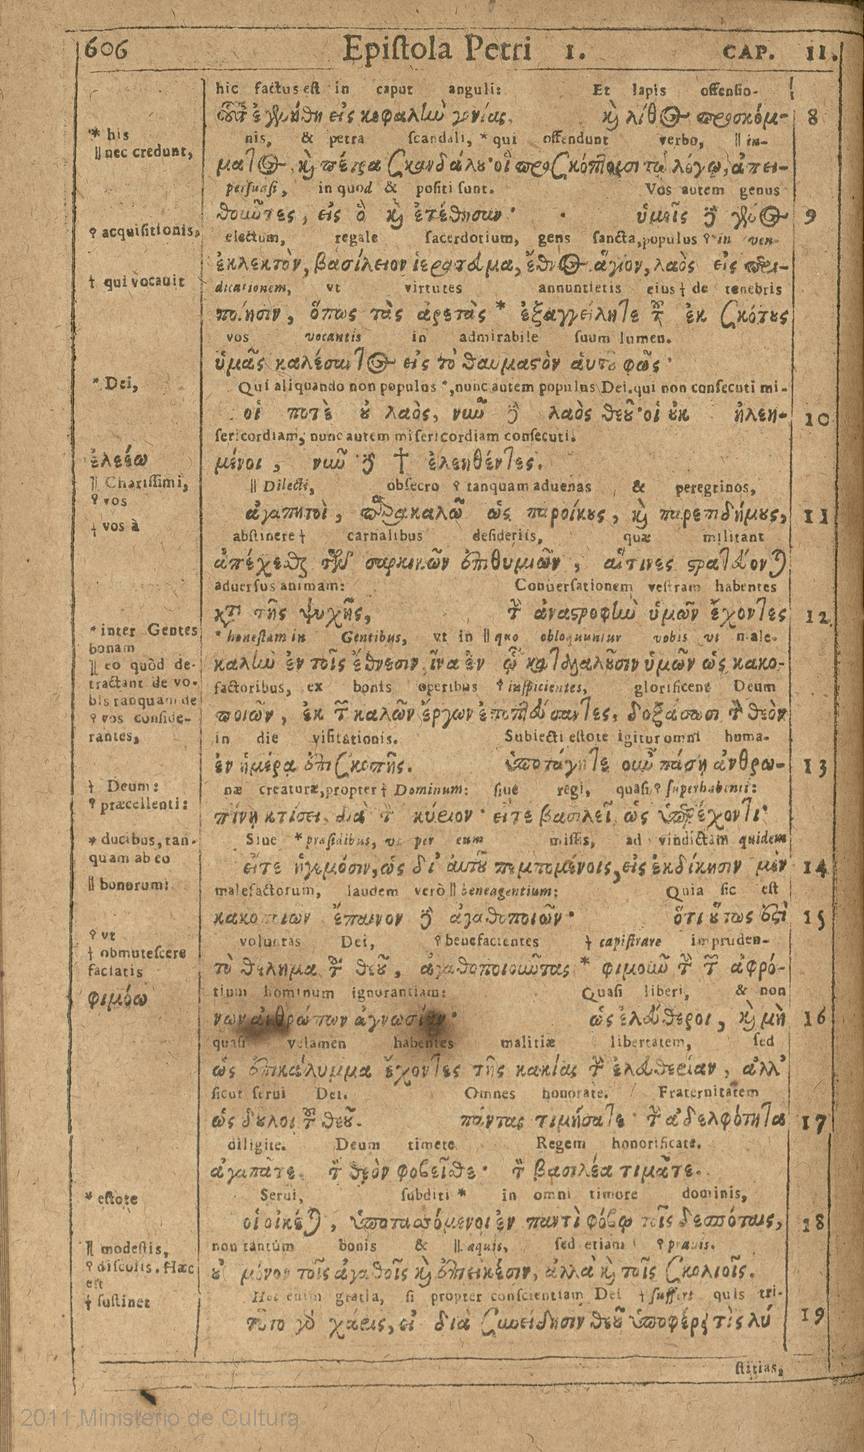 606 Epistola Petri 1. CAP. II.
hic factus est in caput anguli: Et lapis offensio-
οὗτος ἐγενήθη εἰς κεφαλὴν γωνίας. καὶ λίθος προσκόμ- 8
* his
nis, & petra scandali, * qui offendunt verbo, || in-
|| nec credunt,
ματος, καὶ πέτρα σκανδάλου· οἳ προσκόπτουσι τῷ λόγῳ, ἀπει-
persuasi, in quod & positi sunt. Vos autem genus
θοῦντες, εἰς ὃ καὶ ἐτέθησαν· ὑμεῖς δὲ γένος 9
♀ acquisitionis,
electum, regale sacerdotium, gens sancta, populus ♀ in ven-
ἐκλεκτὸν, βασίλειον ἱεράτευμα, ἔθνος ἅγιον, λαὸς εἰς περι-
† qui vocavit
dicationem, vt virtutes annuntietis eius † de tenebris
ποίησιν, ὅπως τὰς ἀρετὰς * ἐξαγγείλητε τοῦ ἐκ σκότους
vos vocantis in admirabile suum lumen.
ὑμᾶς καλέσαντος εἰς τὸ θαυμαστὸν αὐτοῦ φῶς·
* Dei,
Qui aliquando non populus *, nunc autem populus Dei. qui non consecuti mi-
οἱ ποτὲ οὐ λαὸς, νῦν δὲ λαὸς θεοῦ· οἱ οὐκ ἠλεη- 10
sericordiam, nunc autem misericordiam consecuti.
ἐλεέω
μένοι, νῦν δὲ † ἐλεηθέντες.
|| Charissimi,
|| Dilecti, obsecro ♀ tanquam aduenas & peregrinos,
♀ vos
ἀγαπητοὶ, παρακαλῶ ὡς παροίκους, καὶ παρεπιδήμους, 11
† vos à
abstinere † carnalibus desideriis, quæ militant
ἀπέχεσθαι τῶν σαρκικῶν ἐπιθυμιῶν, αἵτινες στρατεύονται
aduersus animam: Conuersationem vestram habentes
κατὰ τῆς ψυχῆς, τὴν ἀναστροφὴν ὑμῶν ἔχοντες 12
* inter Gentes
bonam
* honestam in Gentibus, vt in || quo obloquuntur vobis vt male-
|| eo quòd de-
καλὴν ἐν τοῖς ἔθνεσιν, ἵνα ἐν ᾧ καταλαλοῦσιν ὑμῶν ὡς κακο-
tractant de vo-
factoribus, ex bonis operibus ♀ inspicientes, glorificent Deum
bis tanquam de
♀ vos conside-
ποιῶν, ἐκ τῶν καλῶν ἔργων ἐποπτεύσαντες, δοξάσωσι τὸν θεὸν
rantes,
in die visitationis. Subiecti estote igitur omni huma-
ἐν ἡμέρᾳ ἐπισκοπῆς. ὑποτάγητε οὖν πάσῃ ἀνθρω- 13
† Deum:
næ creaturæ, propter † Dominum: siue regi, quasi ♀ superhabenti:
♀ præcellenti:
πίνῃ κτίσει, διὰ τὸν κύριον· εἴτε βασιλεῖ ὡς ὑπερέχοντι·
* ducibus, tan-
Siue * præsidibus, vt per eum missis, ad vindictam quidem
quam ab eo
εἴτε ἡγεμόσιν, ὡς δι' αὐτοῦ πεμπομένοις, εἰς ἐκδίκησιν μὲν 14
|| bonorum:
malefactorum, laudem verò || beneagentium: Quia sic est
κακοποιῶν ἔπαινον δὲ ἀγαθοποιῶν· ὅτι οὕτως ἐστὶ 15
♀ vt
† obmutescere
voluntas Dei, ♀ benefacientes † capistrare impruden-
faciatis
τὸ θέλημα τοῦ θεοῦ, ἀγαθοποιοῦντας * φιμοῦν τὴν τῶν ἀφρό-
φιμόω
tium hominum ignorantiam: Quasi liberi, & non
νων ἀνθρώπων ἀγνωσίαν· ὡς ἐλεύθεροι, καὶ μὴ 16
quasi velamen habentes malitiæ libertatem, sed
ὡς ἐπικάλυμμα ἔχοντες τῆς κακίας τὴν ἐλευθερίαν, ἀλλ'
sicut serui Dei. Omnes honorate. Fraternitatem
ὡς δοῦλοι τοῦ θεοῦ. πάντας τιμήσατε· τὴν ἀδελφότητα 17
diligite. Deum timete Regem honorificate.
ἀγαπᾶτε. τὸν θεὸν φοβεῖσθε· τὸν βασιλέα τιμᾶτε.
* estote
Serui, subditi * in omni timore dominis,
οἱ οἰκέται, ὑποτασσόμενοι ἐν παντὶ φόβῳ τοῖς δεσπόταις, 18
|| modestis,
non tantùm bonis & || æquis, sed etiam ♀ prauis.
♀ discolis. Hæc
οὐ μόνον τοῖς ἀγαθοῖς καὶ ἐπιεικέσιν, ἀλλὰ καὶ τοῖς σκολιοῖς.
est
† sustinet
Hoc enim gratia, si propter conscientiam Dei † suffert quis tri-
τοῦτο γὰρ χάρις, εἰ διὰ συνείδησιν θεοῦ ὑποφέρει τὶς λύ 19
stitias,
2011 Ministerio de Cultura